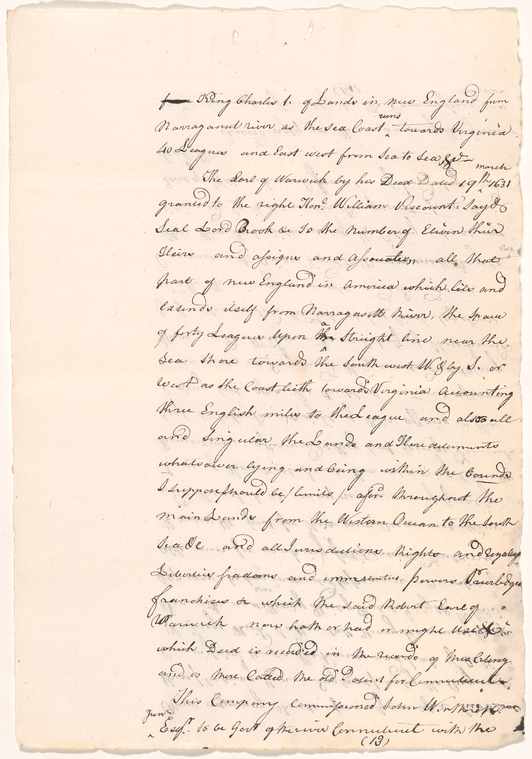 King Charles 1. of Lands in new England from
Narraganut river as the Sea Coast runs towards Virginia
40 Leagues and East west from Sea to Sea &c
The Earl of Warwick by his Deed Dated 19th march 1631
granted to the right Hon.e William Viscount Say &
Seal Lord Brook & to the number of Eleven their
Heirs and assigns and Associates all that
part of new England in America which lies and
Extends itself from Narragasett River, the Space
of forty Leagues upon a Streight line near the
Sea Shore towards the South west W. & by S. or
West as the Coast lieth towards Virginia Accounting
three English miles to the League and also all
and Singular the Lands and Hereditaments
whatsoever lying and being within the bounds
I suppose should be (limits) afor.d throughout the
main Lands from the Western Ocean to the South
Sea &c and all Jurisdictions Rights and royaltys
Liberties fradoms and immenities powers Priviledges
franchises & which the said Robert Earle of
Warwick now hath or had or might
which Deed is recorded in the records of
and is there Called the old Patent for Connecticut
This Company Commissioned John Winthrop
Jun.r Esq.r to be Gov.r of the river Connecticut with the
(13)